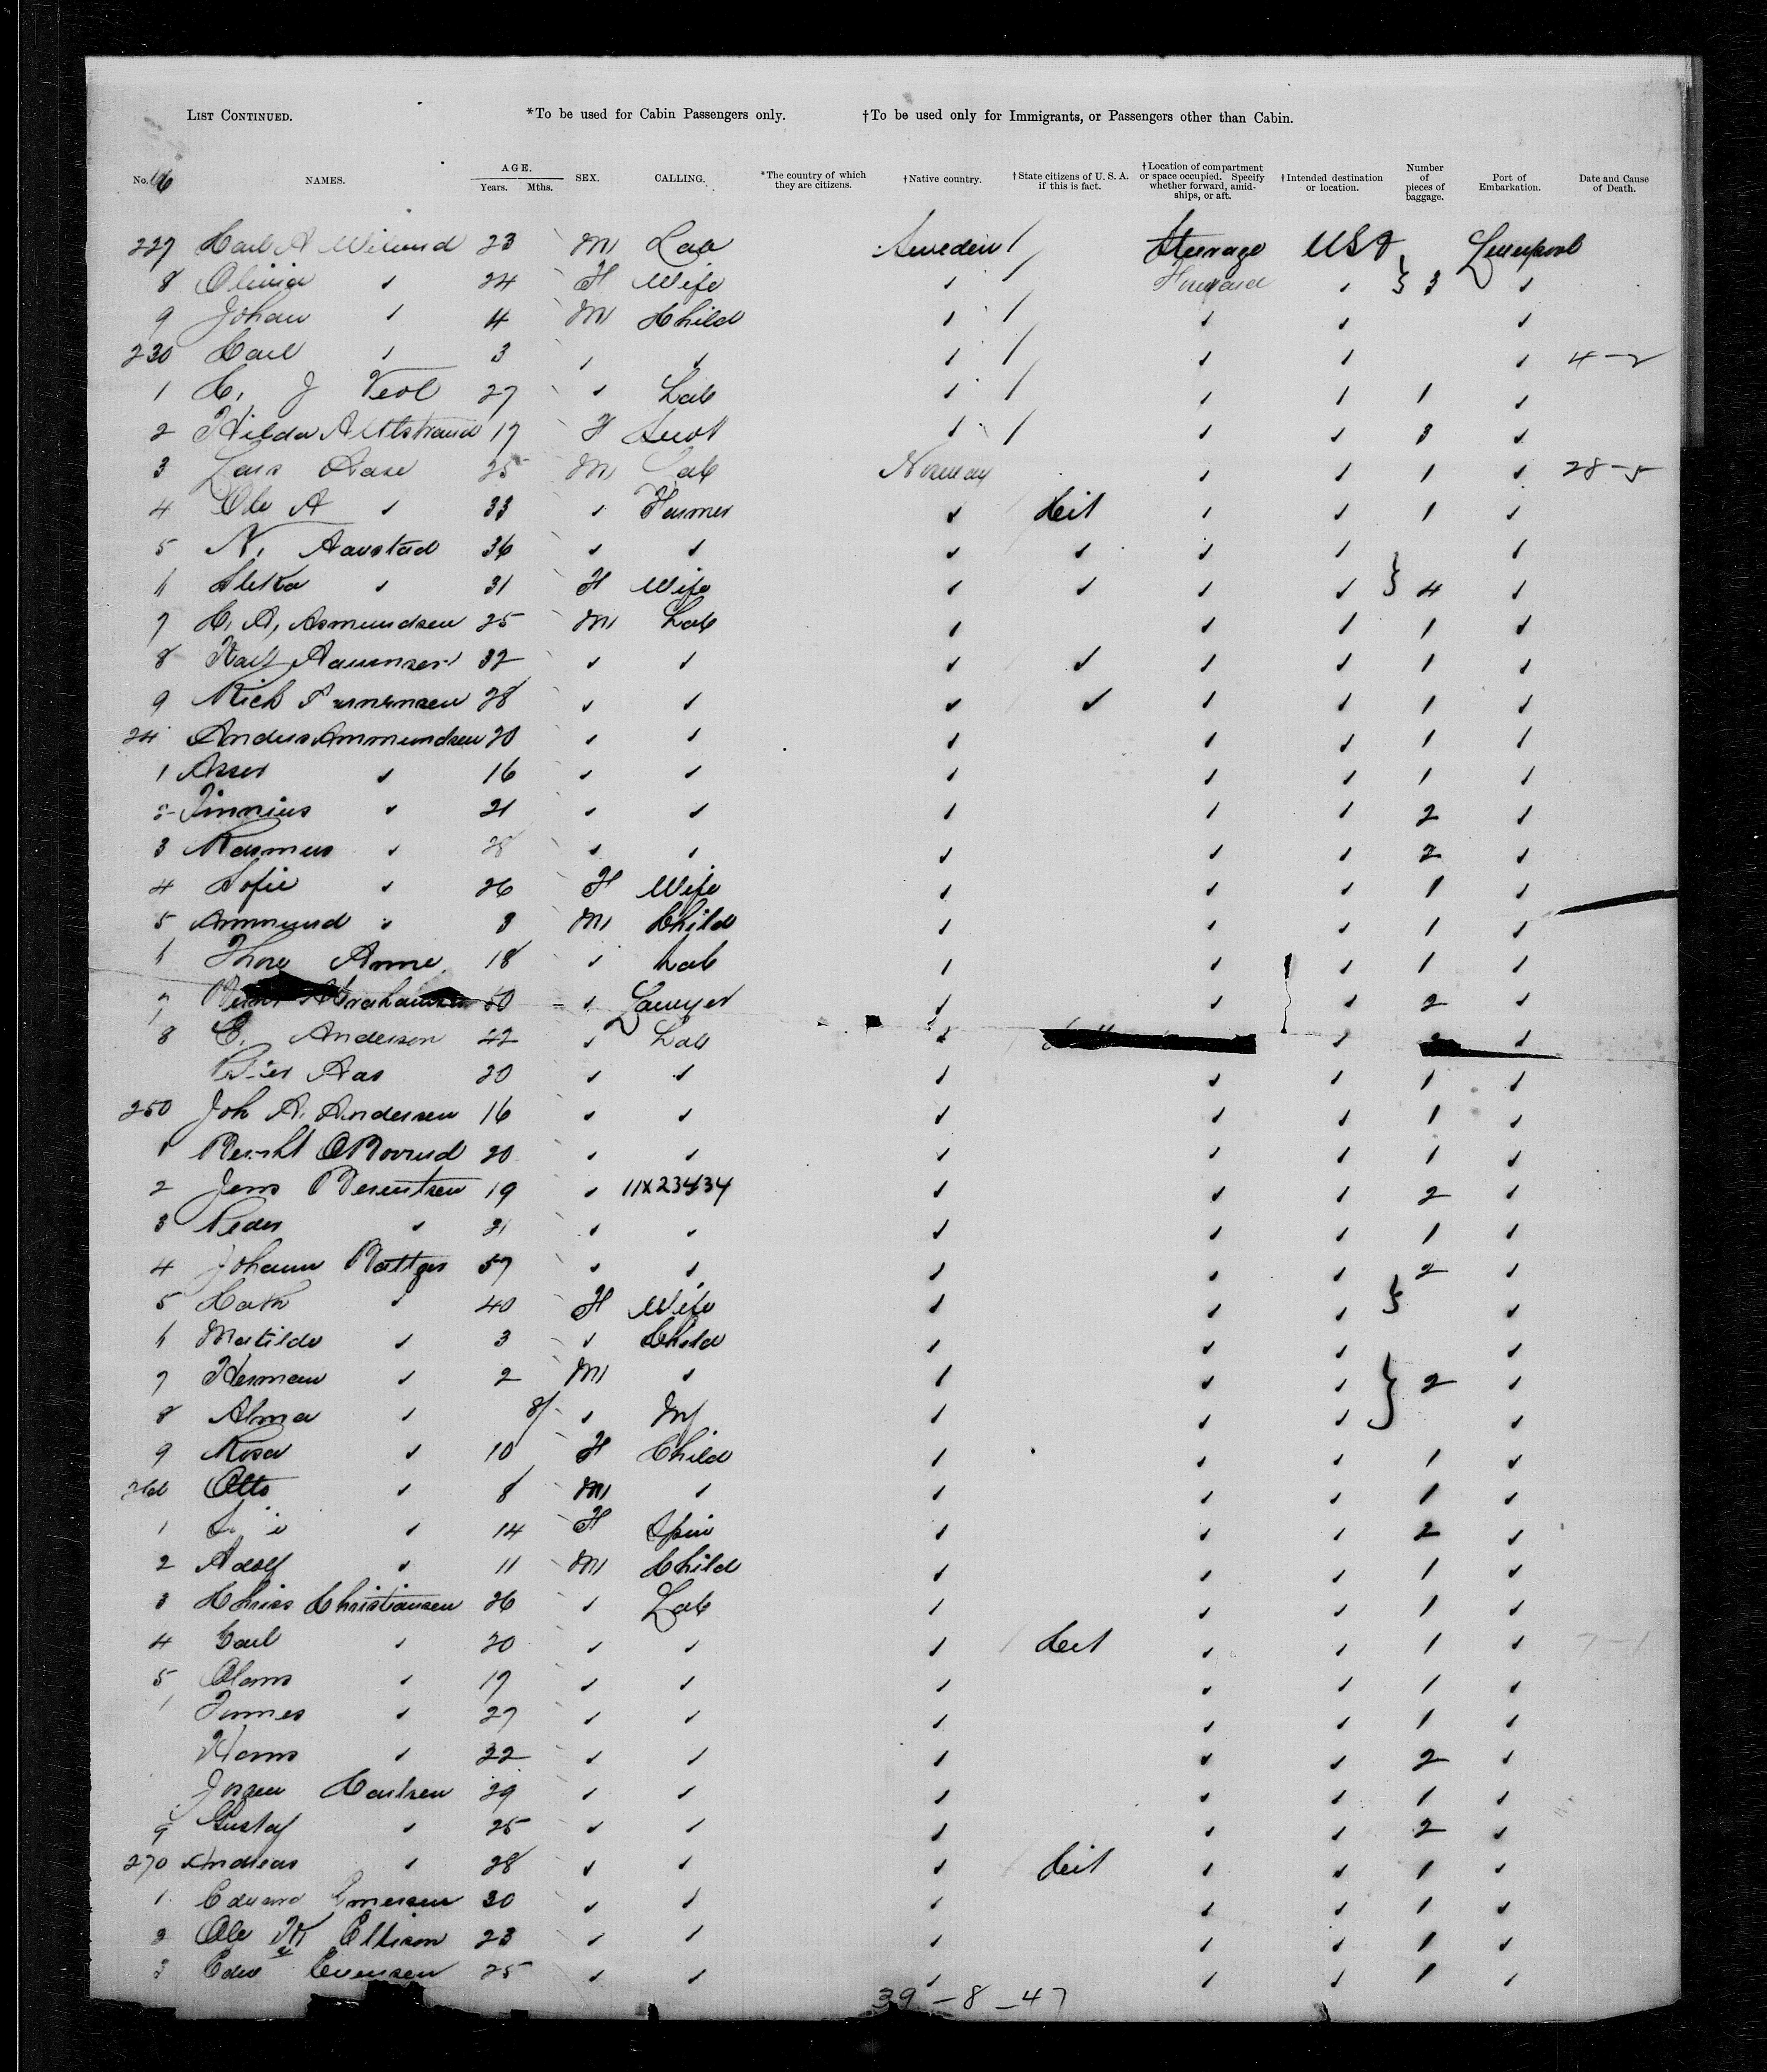 LIST CONTINUED. *To be used for Cabin Passengers only. †To be used only for Immigrants, or Passengers other than Cabin.
No. NAMES. AGE. Years. Mths. SEX. CALLING. *The country of which they are citizens. †Native country. †State citizens of U. S. A. if this is fact. †Location of compartment or space occupied. Specify whether forward, amidships, or aft. †Intended destination or location. Number of pieces of baggage. Port of Embarkation. Date and Cause of Death.
227 Carl A 23 M Lab Sweden / Steerage USA Liverpool
8 Olivia ✓ 24 F Wife ✓ / Forward ✓ } 3 ✓
9 Johan ✓ 4 M Child ✓ / ✓ ✓ ✓
230 Carl ✓ 3 ✓ ✓ ✓ / ✓ ✓ ✓ 4-2
1 C. J 27 ✓ Lab ✓ / ✓ ✓ 1 ✓
2 Hilda 17 F Servt ✓ / ✓ ✓ 3 ✓
3 Lars Aase 25 M Lab Norway ✓ ✓ 1 ✓ 28-5
4 Ole A ✓ 33 ✓ Farmer ✓ Cit ✓ ✓ 1 ✓
5 N. Aavstad 36 ✓ ✓ ✓ ✓ ✓ ✓ ✓
6 ✓ 31 F Wife ✓ ✓ ✓ ✓ } 4 ✓
7 C. A, Asmundsen 25 M Lab ✓ ✓ ✓ 1 ✓
8 32 ✓ ✓ ✓ ✓ ✓ ✓ 1 ✓
9 Rich 28 ✓ ✓ ✓ ✓ ✓ ✓ 1 ✓
24 Anders Ammundsen 20 ✓ ✓ ✓ ✓ ✓ 1 ✓
1 Asser ✓ 16 ✓ ✓ ✓ ✓ ✓ 1 ✓
2 ✓ 21 ✓ ✓ ✓ ✓ ✓ 2 ✓
3 Rasmus ✓ 28 ✓ ✓ ✓ ✓ ✓ 2 ✓
4 Sofie ✓ 26 F Wife ✓ ✓ ✓ 1 ✓
5 Ammund ✓ 3 M Child ✓ ✓ ✓ 1 ✓
6 Thore Anne 18 ✓ Lab ✓ ✓ ✓ 1 ✓
7 Abrahamsen 50 ✓ Lawyer ✓ ✓ ✓ 2 ✓
8 C. Anderson 42 ✓ Lab ✓ ✓ ✓
Aas 20 ✓ ✓ ✓ ✓ ✓ 1 ✓
250 Joh A. Andersen 16 ✓ ✓ ✓ ✓ ✓ 1 ✓
1 20 ✓ ✓ ✓ ✓ ✓ 1 ✓
2 Jens Berentsen 19 ✓ 11X23434 ✓ ✓ ✓ 2 ✓
3 Peder ✓ 21 ✓ ✓ ✓ ✓ ✓ 1 ✓
4 Johann 57 ✓ ✓ ✓ ✓ ✓ 2 ✓
5 Cath ✓ 40 F Wife ✓ ✓ ✓ } ✓
6 Matilde ✓ 3 ✓ Child ✓ ✓ ✓ ✓
7 Herman ✓ 2 M ✓ ✓ ✓ ✓ } 2 ✓
8 Alma ✓ 8/ ✓ Inf ✓ ✓ ✓ ✓
9 Rosa ✓ 10 F Child ✓ ✓ ✓ 1 ✓
260 Otto ✓ 8 M ✓ ✓ ✓ ✓ 1 ✓
1 ✓ 14 F Spin ✓ ✓ ✓ 2 ✓
2 Adolf ✓ 11 M Child ✓ ✓ ✓ 1 ✓
3 Chriss Christiansen 26 ✓ Lab ✓ ✓ ✓ 1 ✓
4 Carl ✓ 20 ✓ ✓ ✓ Cit ✓ ✓ 1 ✓ 7-1
5 ✓ 17 ✓ ✓ ✓ ✓ ✓ 1 ✓
✓ 27 ✓ ✓ ✓ ✓ ✓ 1 ✓
Hans ✓ 22 ✓ ✓ ✓ ✓ ✓ 2 ✓
Jorgen Carlsen 29 ✓ ✓ ✓ ✓ ✓ 1 ✓
9 Gustaf ✓ 25 ✓ ✓ ✓ ✓ ✓ 2 ✓
270 Andreas ✓ 28 ✓ ✓ ✓ Cit ✓ ✓ 1 ✓
1 Edward 30 ✓ ✓ ✓ ✓ ✓ 1 ✓
2 Ole Ellison 23 ✓ ✓ ✓ ✓ ✓ 1 ✓
3 Edw Evensen 25 ✓ ✓ ✓ ✓ ✓ 1 ✓
39-8-47